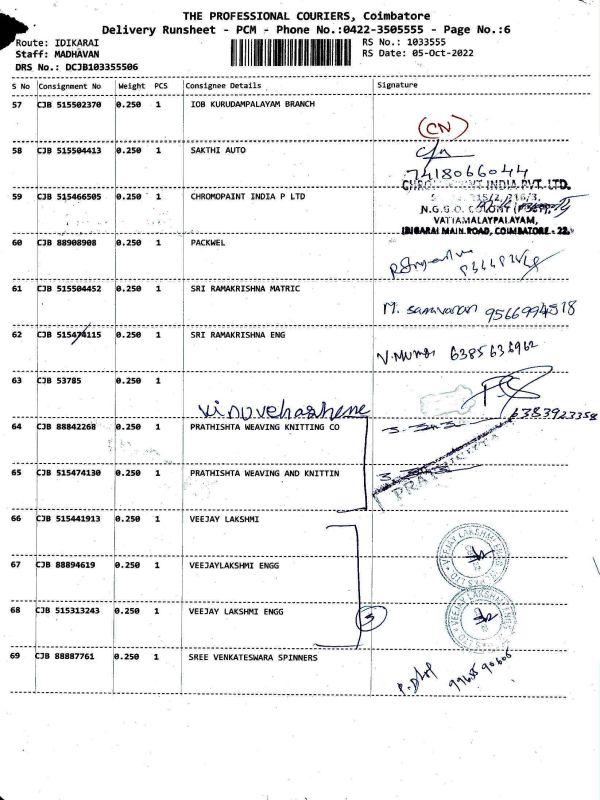 THE PROFESSIONAL COURIERS, Coimbatore
Delivery Runsheet - PCM - Phone No.:0422-3505555 - Page No.:6
Route: IDIKARAI
RS No.: 1033555
Staff: MADHAVAN
RS Date: 05-Oct-2022
DRS No.: DCJB103355506
S No Consignment No Weight PCS Consignee Details Signature
57 CJB 515502370 0.250 1 IOB KURUDAMPALAYAM BRANCH
(CN)
58 CJB 515504413 0.250 1 SAKTHI AUTO
7418066044
INDIA PVT. LTD.
59 CJB 515466505 0.250 1 CHROMOPAINT INDIA P LTD
N.G.G.O. COLONY
VATTAMALAYPALAYAM,
IDIGARAI MAIN ROAD, COIMBATORE - 22.
60 CJB 88908908 0.250 1 PACKWEL
61 CJB 515504452 0.250 1 SRI RAMAKRISHNA MATRIC
9566994518
62 CJB 515474115 0.250 1 SRI RAMAKRISHNA ENG
6385636962
63 CJB 53785 0.250 1
6383923358
64 CJB 88842268 0.250 1 PRATHISHTA WEAVING KNITTING CO
65 CJB 515474130 0.250 1 PRATHISHTA WEAVING AND KNITTIN
66 CJB 515441913 0.250 1 VEEJAY LAKSHMI
67 CJB 88894619 0.250 1 VEEJAYLAKSHMI ENGG
68 CJB 515313243 0.250 1 VEEJAY LAKSHMI ENGG
3
69 CJB 88887761 0.250 1 SREE VENKATESWARA SPINNERS